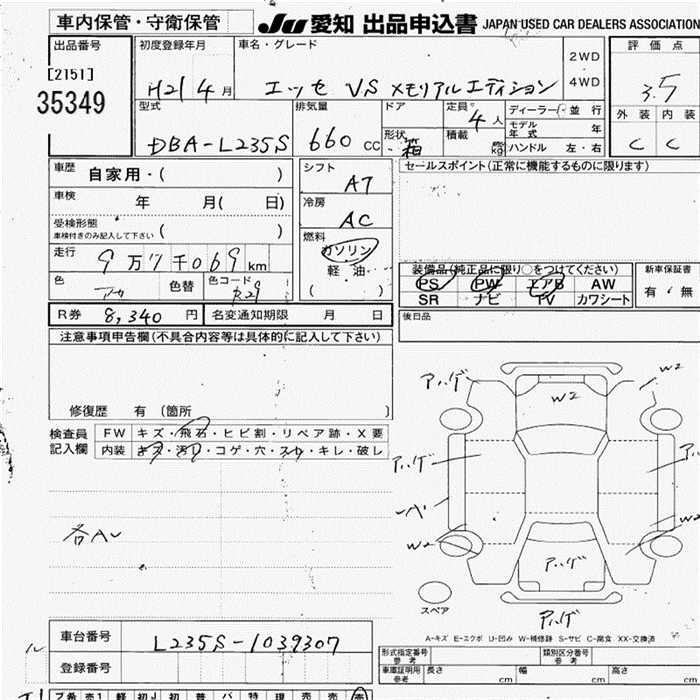 車内保管・守衛保管
JU 愛知 出品申込書 JAPAN USED CAR DEALERS ASSOCIATION
出品番号
[2151]
35349
初度登録年月
H21 4月
車名・グレード
エッセ VS メモリアルエディション
2WD
4WD
評価点
3.5
外装 内装
C C
型式
DBA-L235S
排気量
660 CC
ドア
形状
箱
定員 4人
積載 kg
ディーラー・並行
モデル年式 年
ハンドル 左・右
車歴 自家用・( )
車検 年 月( 日)
受検形態
車検付きのみ記入して下さい ( )
走行 9万7千069km
色
色替
色コード
R29
シフト
AT
冷房
AC
燃料
ガソリン
軽油
( )
セールスポイント(正常に機能するものに限ります)
装備品(純正品に限り○をつけてください)
PS PW エアB AW
SR ナビ TV カワシート
新車保証書
有・無
後日品
R券 8,340円
名変通知期限 月 日
注意事項申告欄(不具合内容等は具体的に記入して下さい)
修復歴 有 (箇所 )
検査員
記入欄
FW キズ・飛石・ヒビ割・リペア跡・X要
内装 キズ・汚れ・コゲ・穴・スレ・キレ・破レ
各A
アハゲ
W2
W2
アハゲ
A
W2
W2
アハゲ
アハゲ
スペア
A-キズ E-エクボ U-凹み W-補修跡 S-サビ C-腐食 XX-交換済
車台番号 L235S-1039307
登録番号
形式指定番号
参考
類別区分番号
参考
車庫証明用
参考
長さ cm 幅 cm 高さ cm